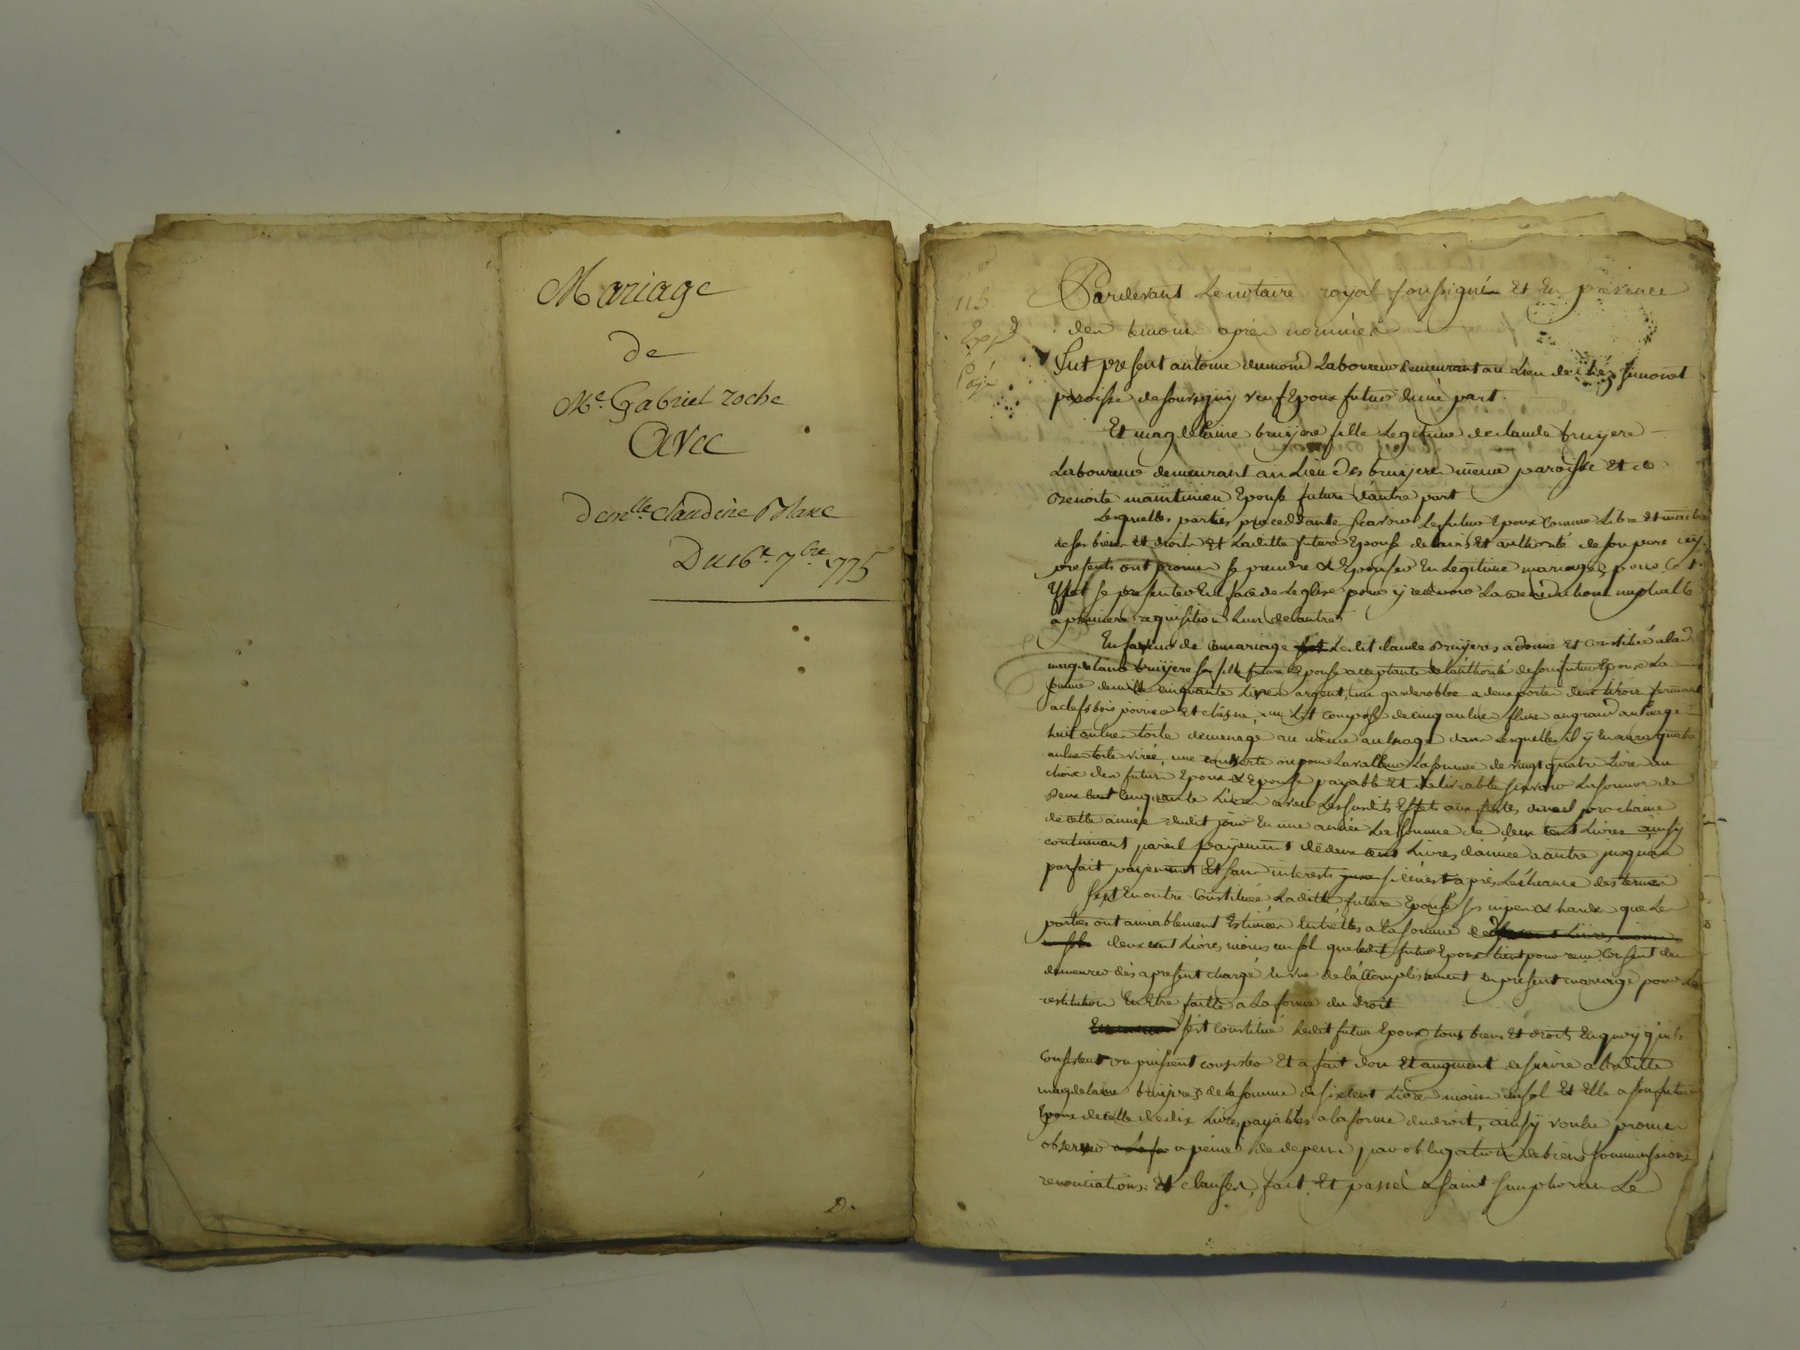 Mariage
de
Me. Gabriel roche
Avec
demlle. Claudine Blanc
Du 16e. 7bre. 775
2.
116.
Expd
Pardevant Le notaire royal soussigné Et En presence
des temoins apres nommés
Fut present antoine dumond Laboureur demeurant au Lieu de chéz Simonet
paroisse de veuf Epoux futur d'une part.
Et magdelaine bruyere fille Legitime de claude bruyere
Laboureur demeurant au Lieu des bruyeres même paroisse Et de
Benoite Epouse future d'autre part
Lesquelles parties procedantes sçavoir Le futur Epoux Comme Libre et maitre
de ses biens Et droits Et Laditte future Epouse de L'avis Et authorité de son pere icy
presents ont promis se prendre & Epouser En Legitime mariage, pour Cet
Effet se presenter En face de Leglise pour y recevoir La benediction nuptialle
a premiere requisition L'un de L'autre
En faveur de ce mariage Ledit claude Bruyere a donné Et Constitué a lad
magdelaine bruyere sa fille future Epouse acceptante de L'authorité de son futur Epoux La
somme de mille cinquante Livres argent, une garderobbe a deux portes deux tiroir fermant
a clefs bois poirier et chesne, un Lit Composé de cinq aulnes au grand aulnage
huit aulnes toile de menage au même aulnage dans Lesquelles il y En aura quatre
aulnes toile une couverte ou pour La valleur La somme de vingt quatre Livres au
choix des futurs Epoux & Epouse payable Et delivrable sçavoir La somme de
Deux Cent Cinquante Livres avec Les susdits Effets aux fêtes de noel prochaine
de cette année dudit jour En une année La somme de deux cent Livres ainsy
continuant pareil payement de deux cent Livres d'année a autre jusqu'au
parfait payement Et sans interests si ce n'est après L'échéance des termes
S'est En outre Constituée Laditte future Epouse ses nipes & hardes que Les
parties ont amiablement Estimées Entr'elles a La somme de
deux cent Livres moins un sol que ledit futur Epoux
demeurer dès apresent chargé En vue de L'accomplissement du present mariage pour La
restitution En Etre faitte a La forme du droit
s'est Constitué Ledit futur Epoux tous biens Et droits En quoy qu'ils
Consistent ou puissent consister Et a fait don Et augment de survie a Laditte
magdelaine bruyere de La somme de six cent Livres moins un sol Et Elle a son futur
Epoux de celle de dix Livres payables a la forme du droit, ainsy voulu promis
observer a peine de depens par obligation de biens soumissions
renonciations Et clauses, fait Et passé a saint simphorien Le